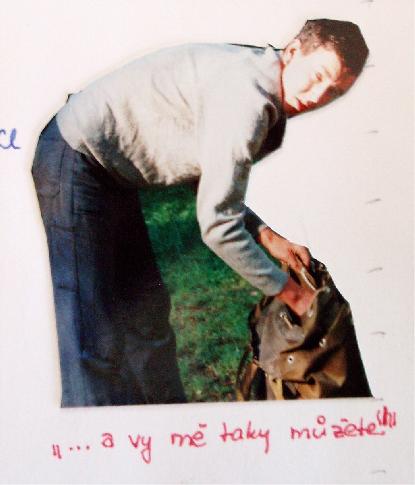 „... a vy mě taky můžete!!!"